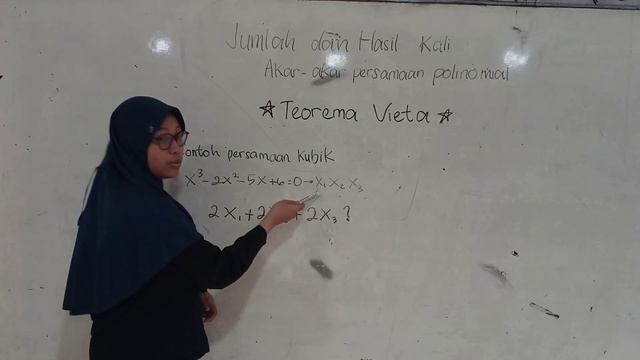 Jumlah dan Hasil Kali
Akar-akar persamaan polinomial
☆ Teorema Vieta ☆
ontoh persamaan kubik
x³-2x²-5x+6=0→x₁ x₂ x₃
2x₁+2 + 2x₃?